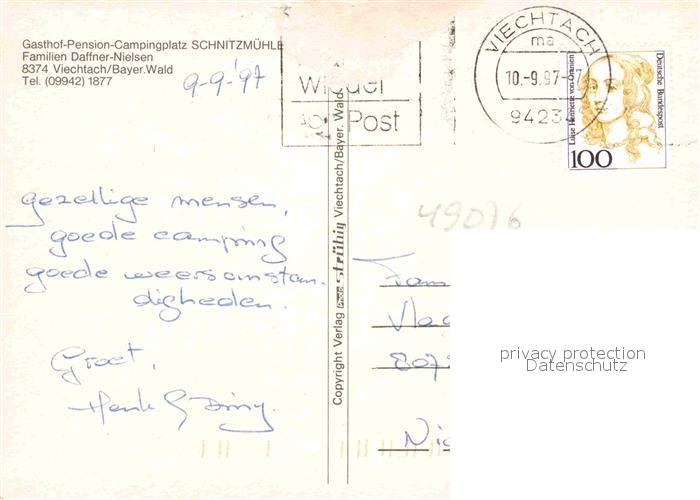 Gasthof-Pension-Campingplatz SCHNITZMÜHLE
Familien Daffner-Nielsen
8374 Viechtach/Bayer.Wald
Tel. (09942) 1877
9-9-'97
Post
VIECHTACH
ma
10.-9.97-
9423
Deutsche Bundespost
Luise Henriette von Oranien
100
49076
gezellige mensen,
goede camping
goede weersomstan-
digheden.
Groet,
Henk
Copyright Verlag Viechtach/Bayer. Wald
Fam
807
privacy protection
Datenschutz